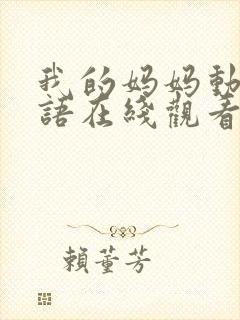 我的妈妈動
語在綫觀看
賴董芳